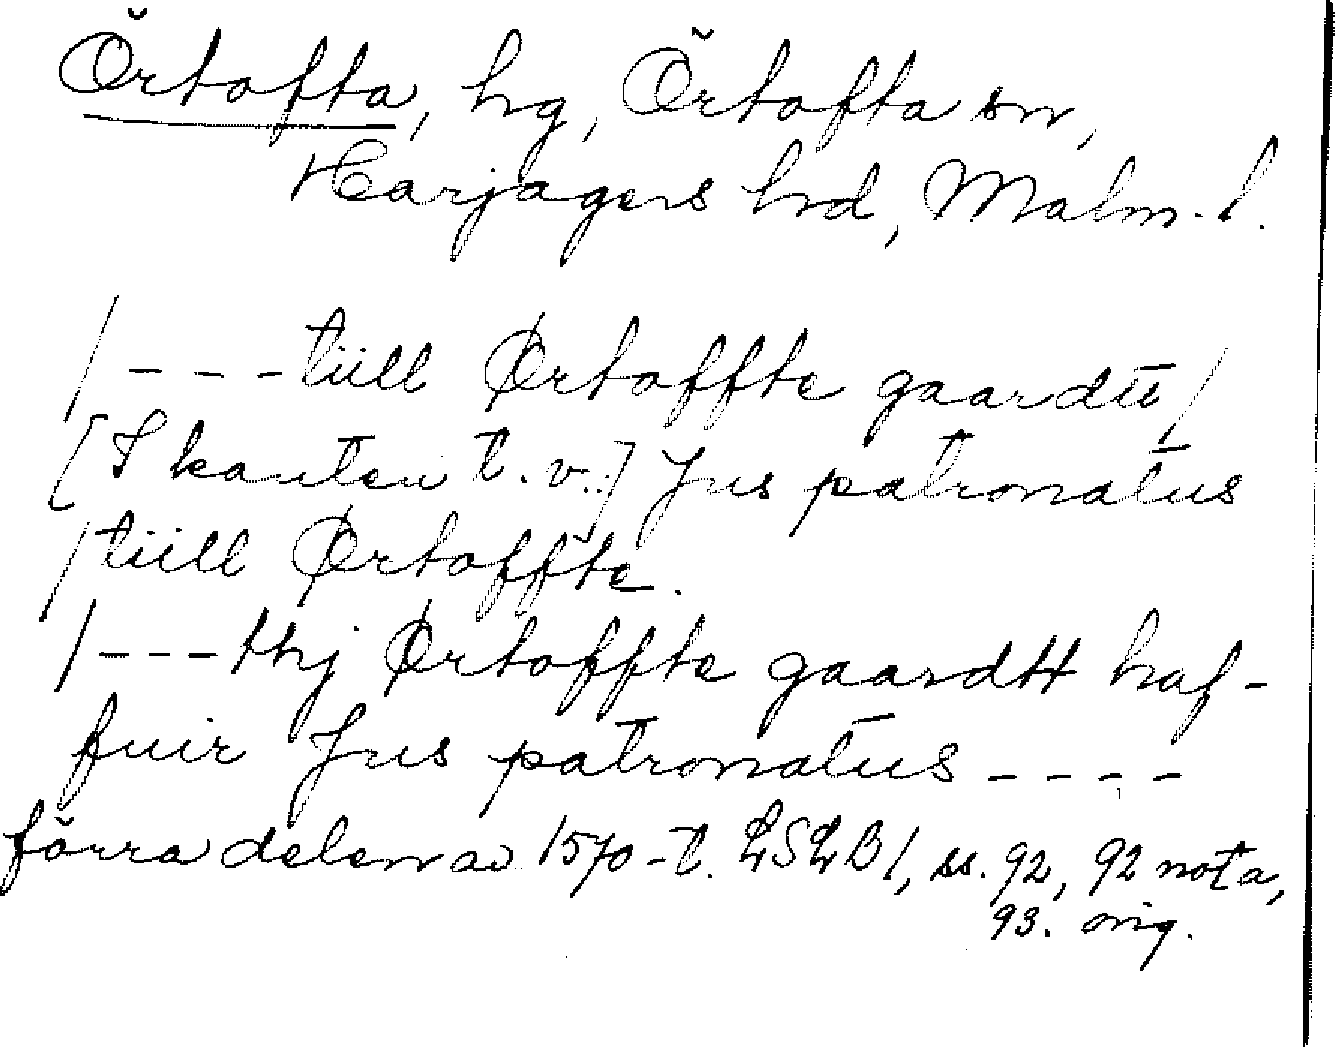 Örtofta, hg, Örtofta sn,
Harjagers hrd, Malm. l.
/---tiill Ørtoffte gaardtt/
[I kanten t. v.:] Jus patronatus
/tiill Ørtoffte.
/---thj Ørtoffte gaardtt haf-
fuir Jus patronatus----
förra delen av 1570-t. LSLB 1, ss. 92, 92 nota,
93. orig.